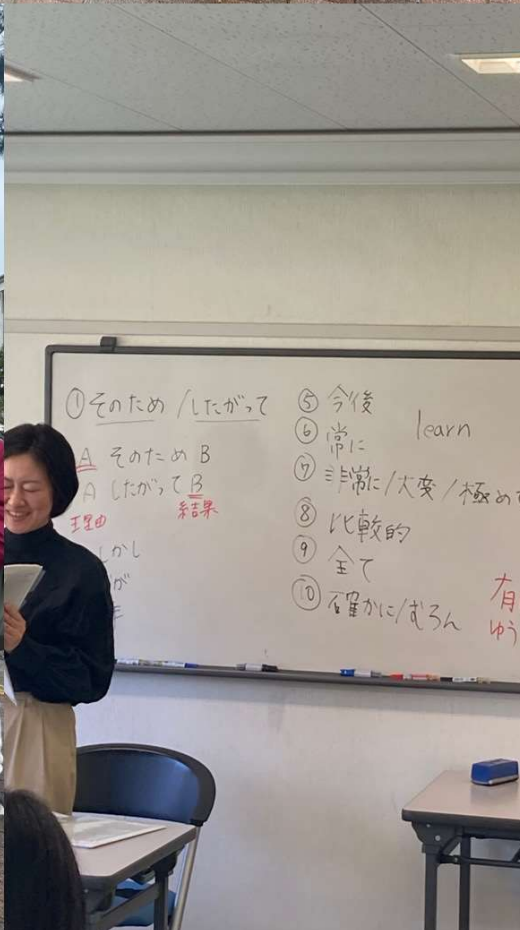 ① そのため / したがって
A そのため B
A したがって B
理由 結果
しかし
が
⑤ 今後
⑥ 常に
learn
⑦ 非常に / 大変 / 極め
⑧ 比較的
⑨ 全て
⑩ 確かに / むろん
ゆう